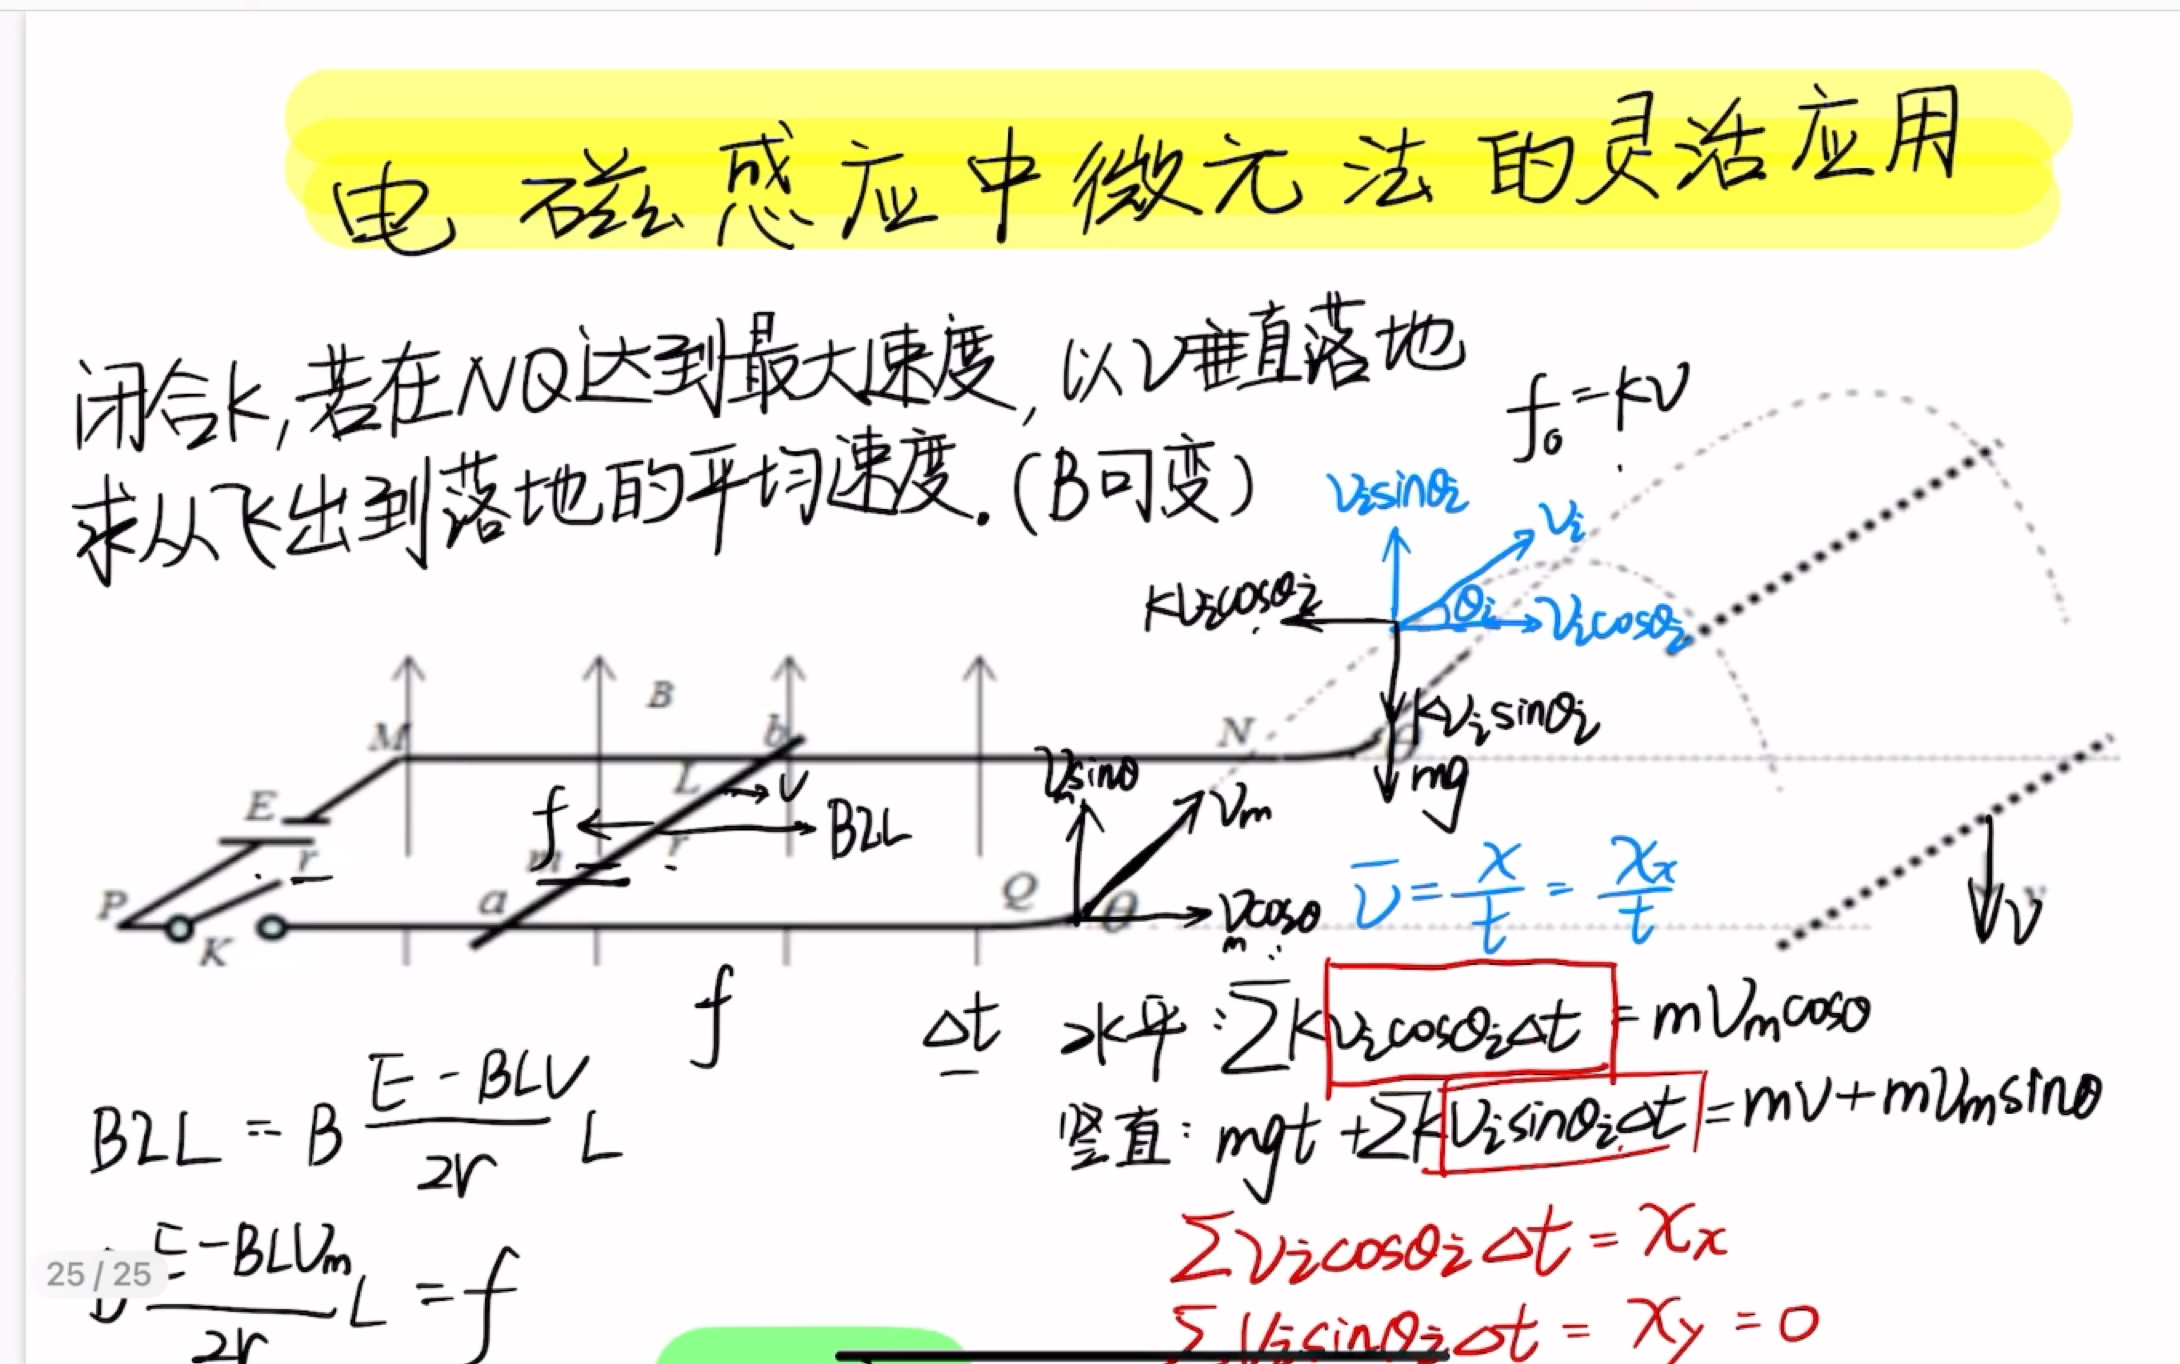 电磁感应中微元法的灵活应用
闭合K,若在NQ达到最大速度,以V垂直落地
求从飞出到落地的平均速度.(B可变)
f₀=kV
Vᵢsinθᵢ
Vᵢ
θᵢ
Vᵢcosθᵢ
KVᵢcosθᵢ
KVᵢsinθᵢ
mg
θ
M
B
b
N
L
V
E
r
f
BIL
m
r
Vₘsinθ
Vₘ
P
K
a
Q
θ
Vₘcosθ
V̄ = x/t = xₓ/t
v
V
f
Δt
水平:ΣKVᵢcosθᵢΔt = mVₘcosθ
竖直:mgt+ΣKVᵢsinθᵢΔt = mV+mVₘsinθ
BIL = B (E-BLV)/2r L
(E-BLVₘ)/2r L = f
ΣVᵢcosθᵢΔt = xₓ
ΣVᵢsinθᵢΔt = x_y = 0
25/25